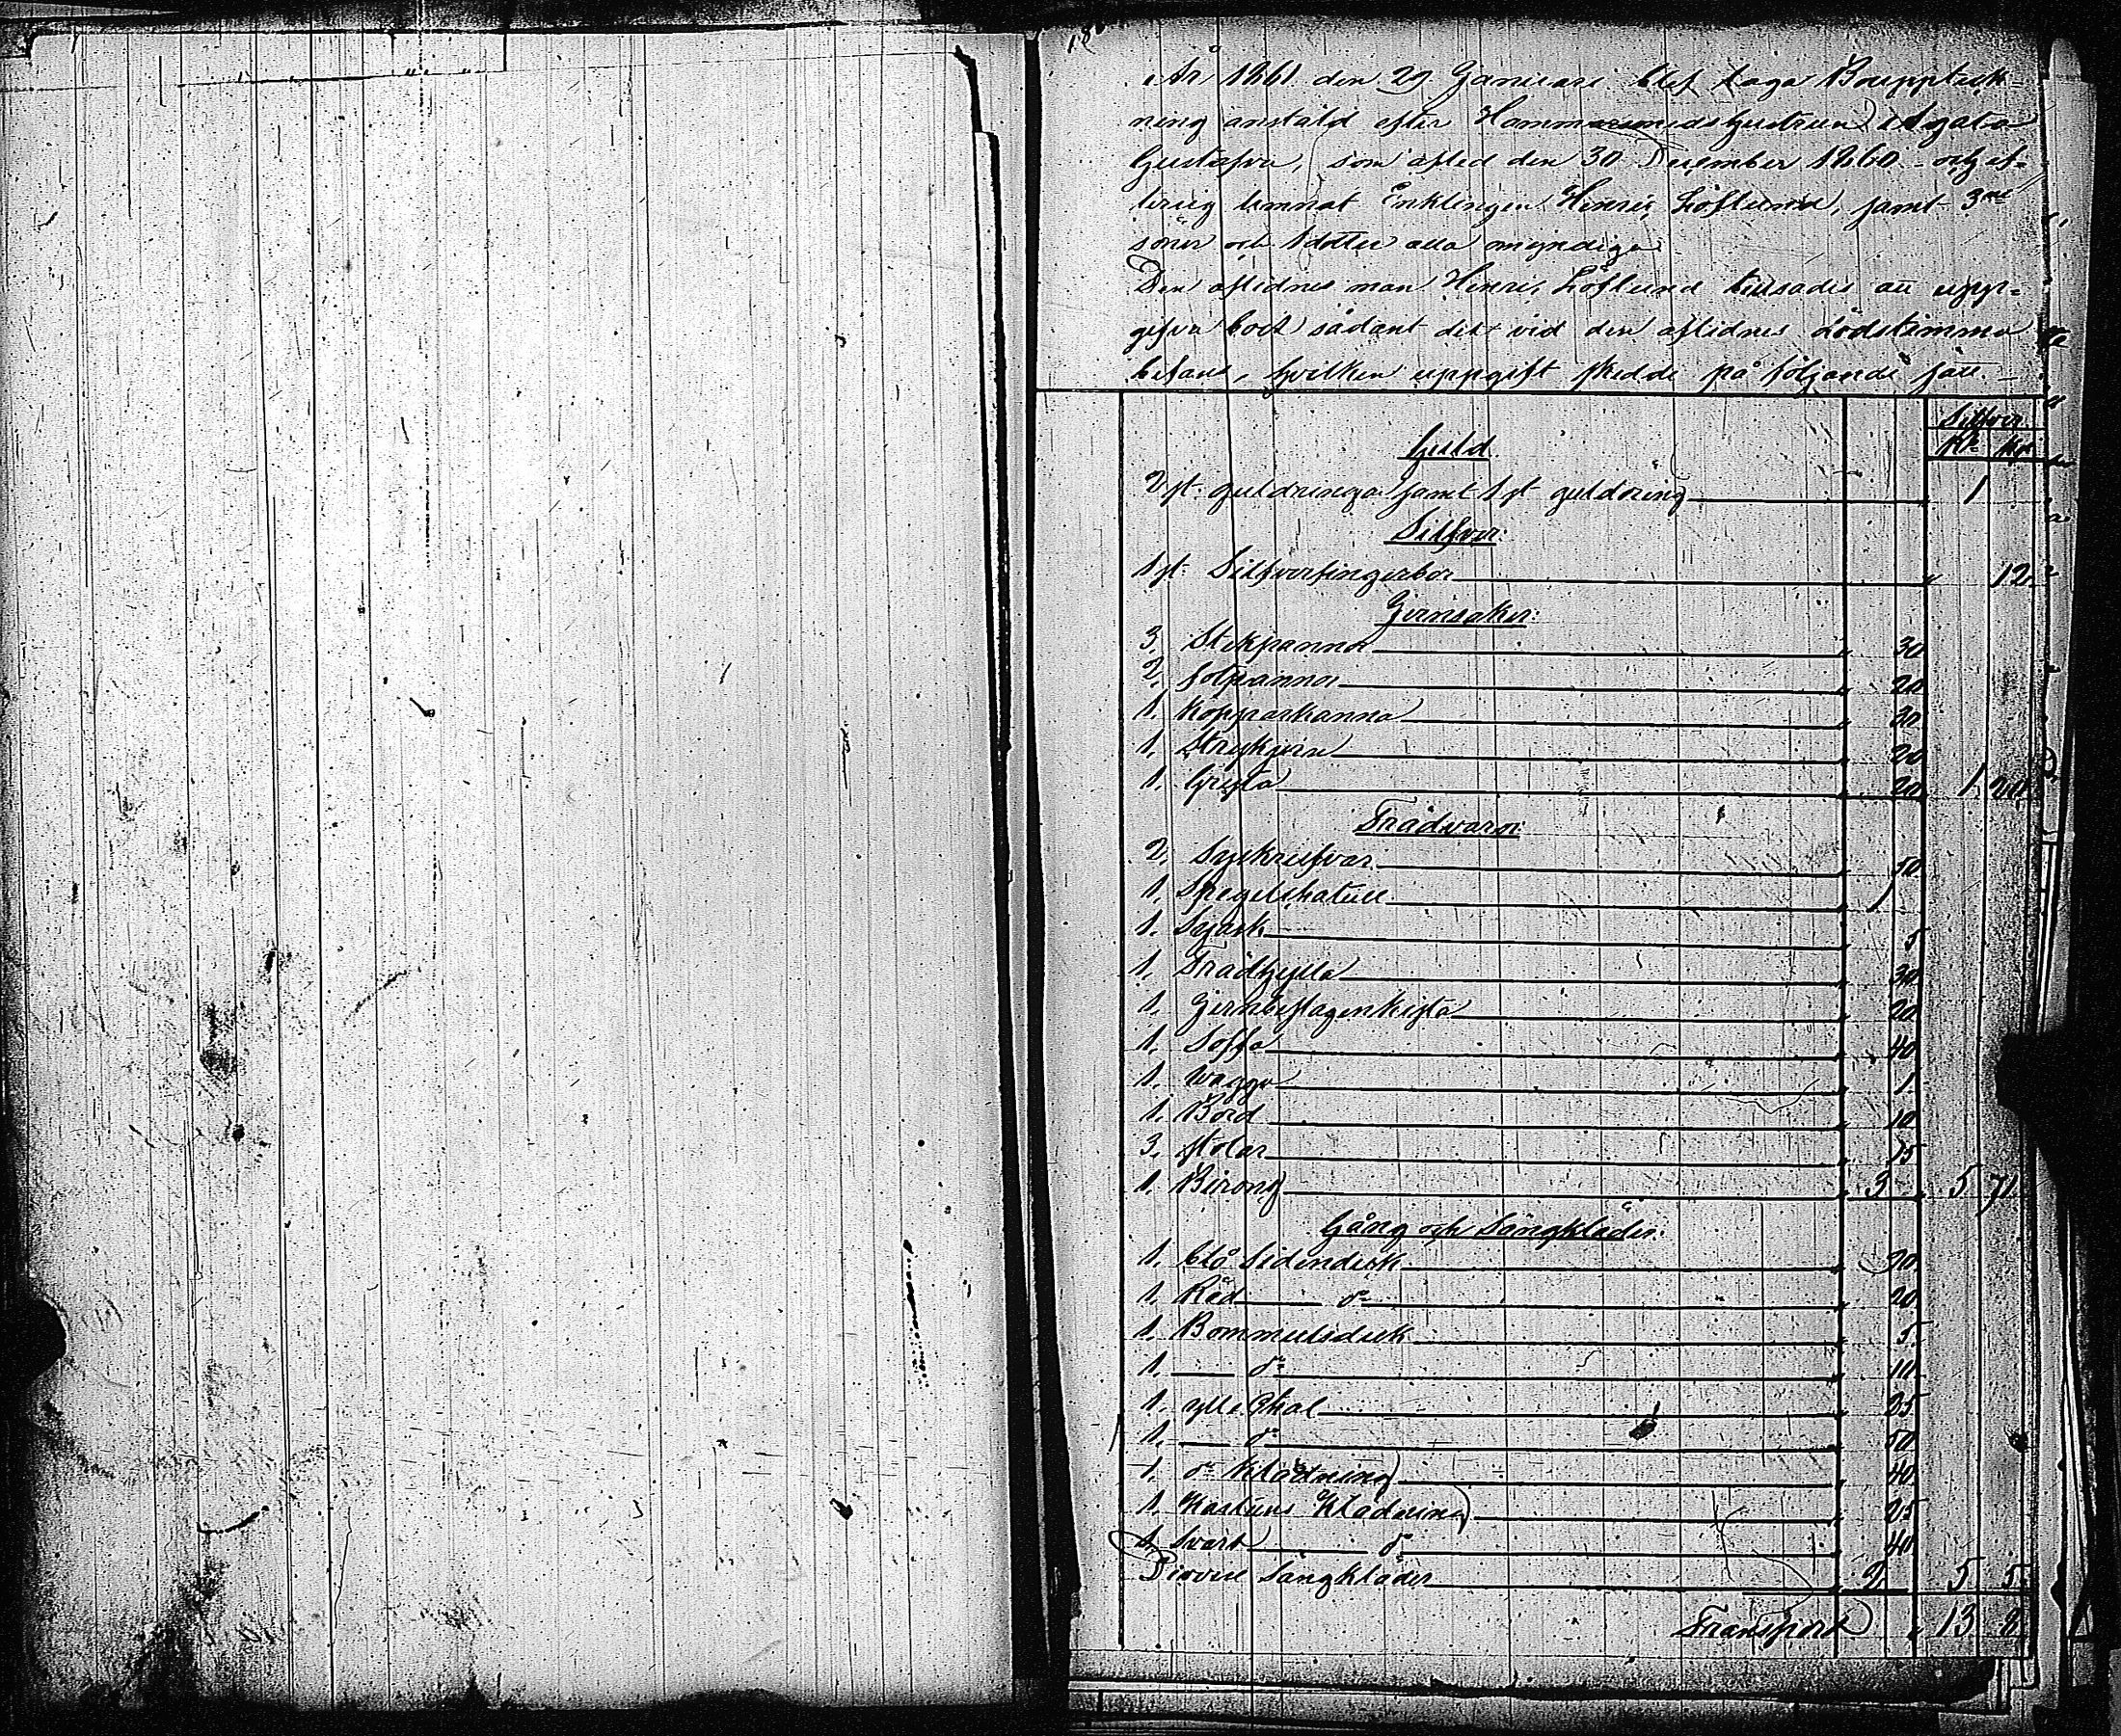 År 1861 den 29 Januari blef laga Bouppteck=
ning anstäld efter Hammarsmedshustrun Agata
Gustafva, som afled den 30 December 1860 och ef=
tersig lemnat Enklingen Henric Löflund, samt 3ne
söner och 1 dotter alla omyndiga
Den aflidnes man Henric Löflund tillsades att upp=
gifva boet sådant det vid den aflidnes dödstimma
befans, hvilken uppgift skedde på följande sätt.
Silfver
Rb. kop
Guld
2 st: guldringar samt 1 st guldring 1
Silfver:
1 st: Silfverfingerbor 12
Jernsaker:
3, Stekpannor 30
2, fotpannor 20
1, Kopparkanna 30
1, Strykjern 20
1, Gryta 20 1 20
Trädvaror:
2, Syskrufvar 50
1, Spegelskatull 1
1, Syask 5
1, Trädhylla 30
1, Jernbeslagenkista 20
1, Soffa 40
1, Vagga 1
1, Bord 10
3, stolar 15
1, Birong 3 5 71
Gång och Sängkläder:
1, blå Sidenduk 90
1, Röd do 20
1, Bommulsduk 5
1, do 10
1, ylle Schal 25
1, do 50
1, do Klädning 40
1, Kattuns Klädning 25
1, Svart do 40
Diverse Sängkläder 2 5 5
Transport 13 8